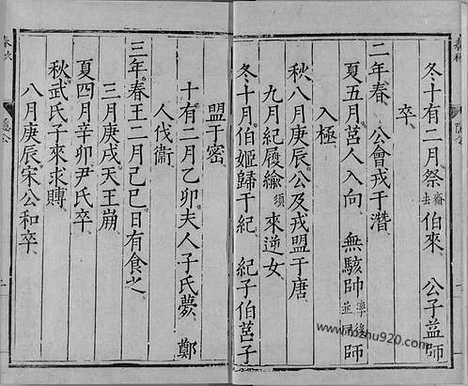 冬十有二月祭伯來　公子益師
卒
二年春　公會戎于潛
夏五月莒人入向　無駭帥師
入極
秋八月庚辰公及戎盟于唐
九月紀履緰來逆女
冬十月伯姬歸于紀　紀子伯莒子
盟于密
十有二月乙卯夫人子氏薨　鄭
人伐衞
三年春王二月己巳日有食之
三月庚戌天王崩
夏四月辛卯尹氏卒
秋武氏子來求賻
八月庚辰宋公和卒